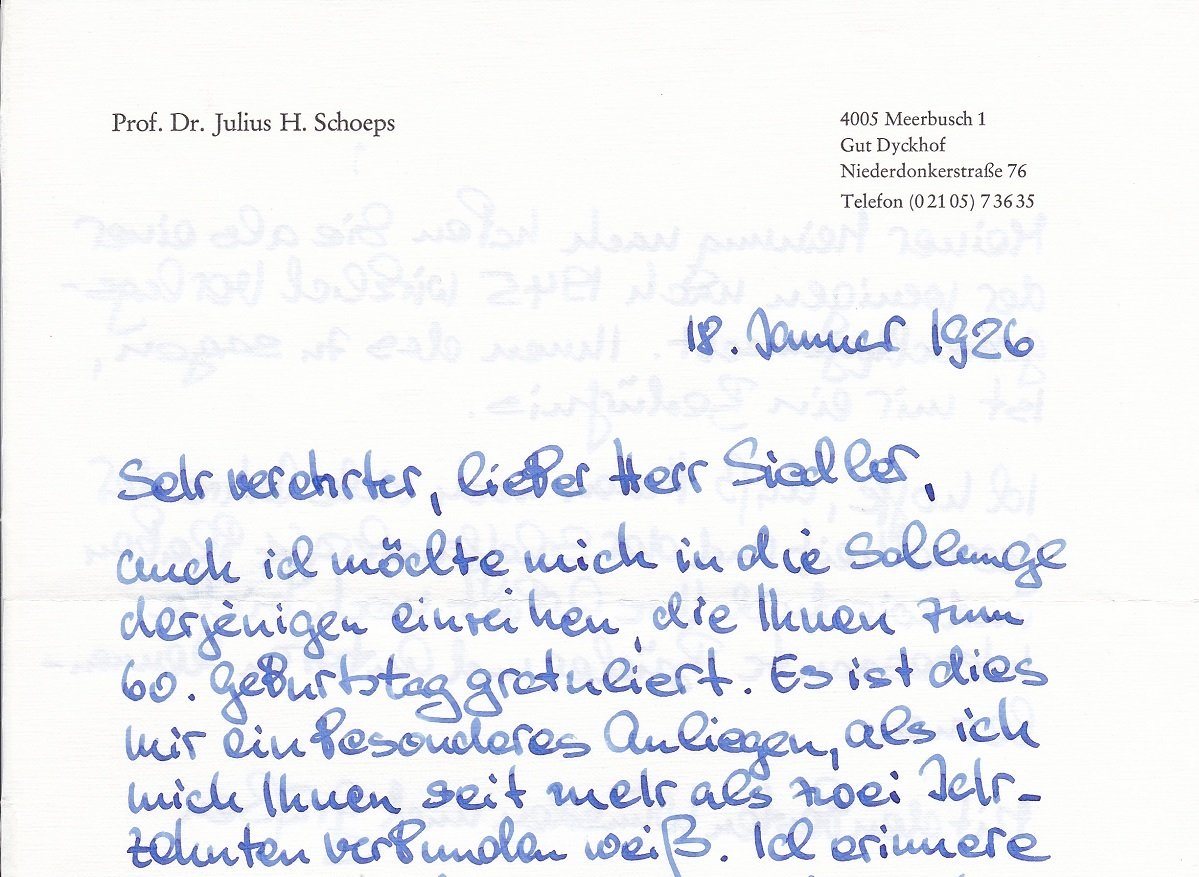 Prof. Dr. Julius H. Schoeps
4005 Meerbusch 1
Gut Dyckhof
Niederdonkerstraße 76
Telefon (0 21 05) 7 36 35
18. Januar 1926
Sehr verehrter, lieber Herr Siedler,
auch ich möchte mich in die Schlange
derjenigen einreihen, die Ihnen zum
60. Geburtstag gratuliert. Es ist dies
mir ein besonderes Anliegen, als ich
mich Ihnen seit mehr als zwei Jahr-
zehnten verbunden weiß. Ich erinnere